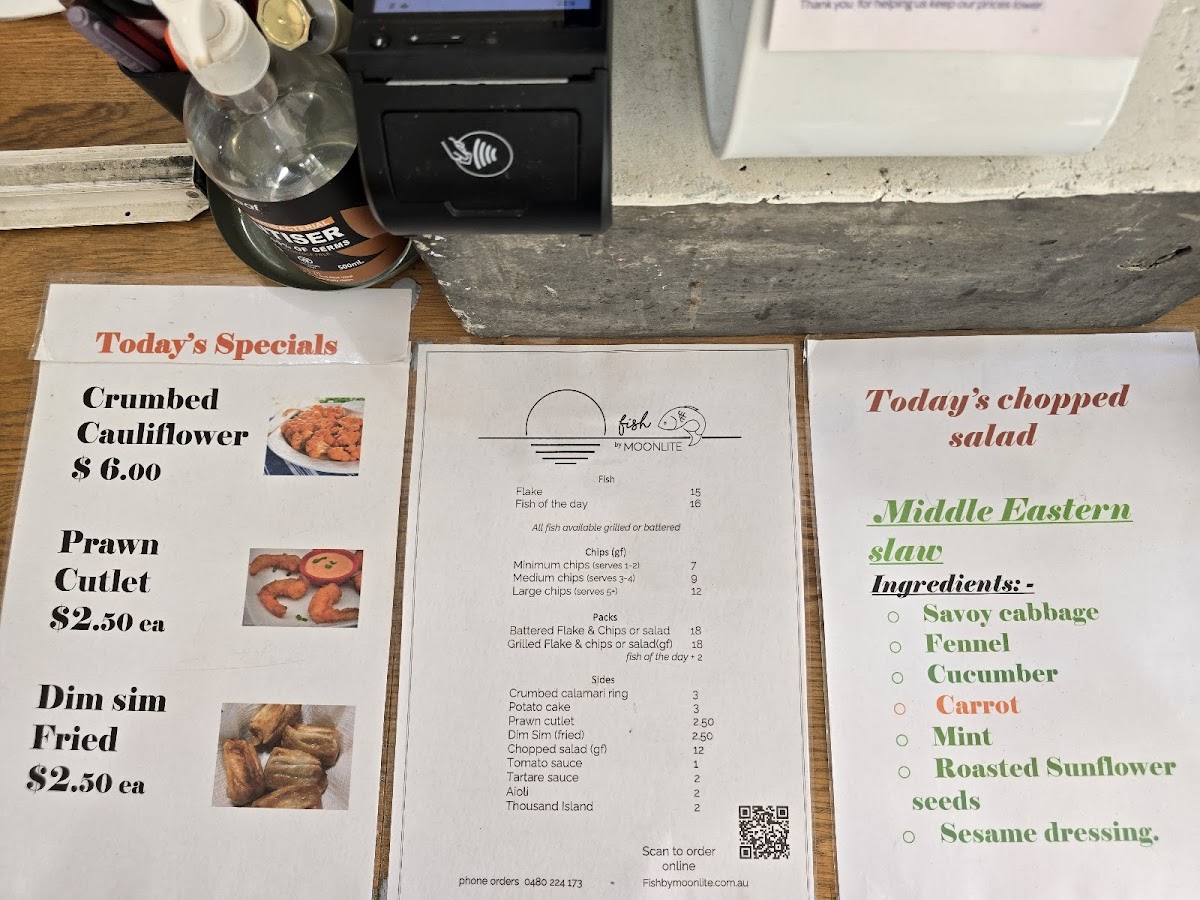 Thank you for helping us keep our prices lower.
TISER
OF GERMS
500mL
Today's Specials
Crumbed
Cauliflower
$ 6.00
Prawn
Cutlet
$2.50 ea
Dim sim
Fried
$2.50 ea
fish
by MOONLITE
Fish
Flake 15
Fish of the day 16
All fish available grilled or battered
Chips (gf)
Minimum chips (serves 1-2) 7
Medium chips (serves 3-4) 9
Large chips (serves 5+) 12
Packs
Battered Flake & Chips or salad 18
Grilled Flake & chips or salad(gf) 18
fish of the day + 2
Sides
Crumbed calamari ring 3
Potato cake 3
Prawn cutlet 2.50
Dim Sim (fried) 2.50
Chopped salad (gf) 12
Tomato sauce 1
Tartare sauce 2
Aioli 2
Thousand Island 2
Scan to order
online
phone orders 0480 224 173 - Fishbymoonlite.com.au
Today's chopped
salad
Middle Eastern
slaw
Ingredients: -
Savoy cabbage
Fennel
Cucumber
Carrot
Mint
Roasted Sunflower
seeds
Sesame dressing.